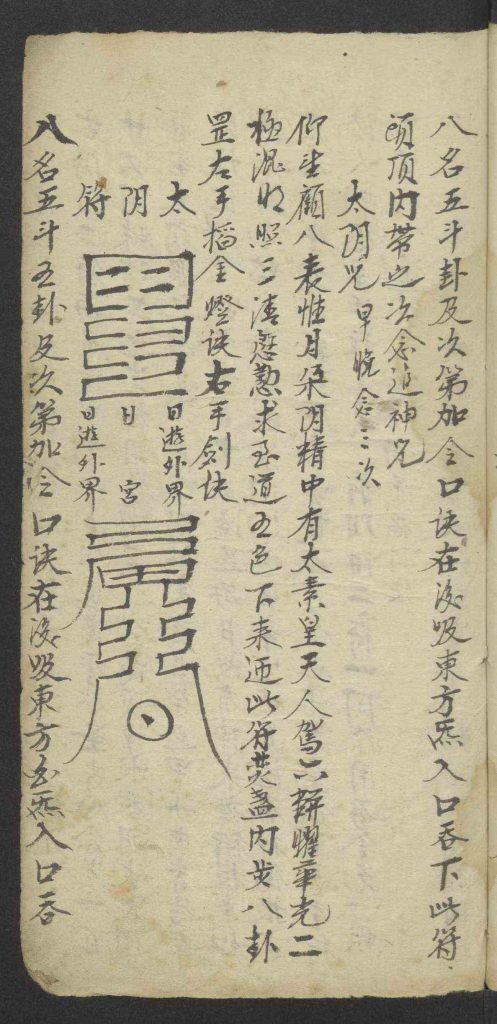 八名五斗卦及次第加令口诀在後吸東方炁入口吞下此符
頭頂内帶之次念追神咒
太阴咒 早晚念三次
仰望顧八表惟月朵阴精中有太素皇天人駕六龍耀華光二
極混明照三清慇懃求至道五色下来迎此符焚盏内步八卦
罡左手搯金燈诀右手劍诀
太 日遊外界
阴 日宮
符 日遊外界
八名五斗五卦及次第加令口诀在後吸東方炁入口吞